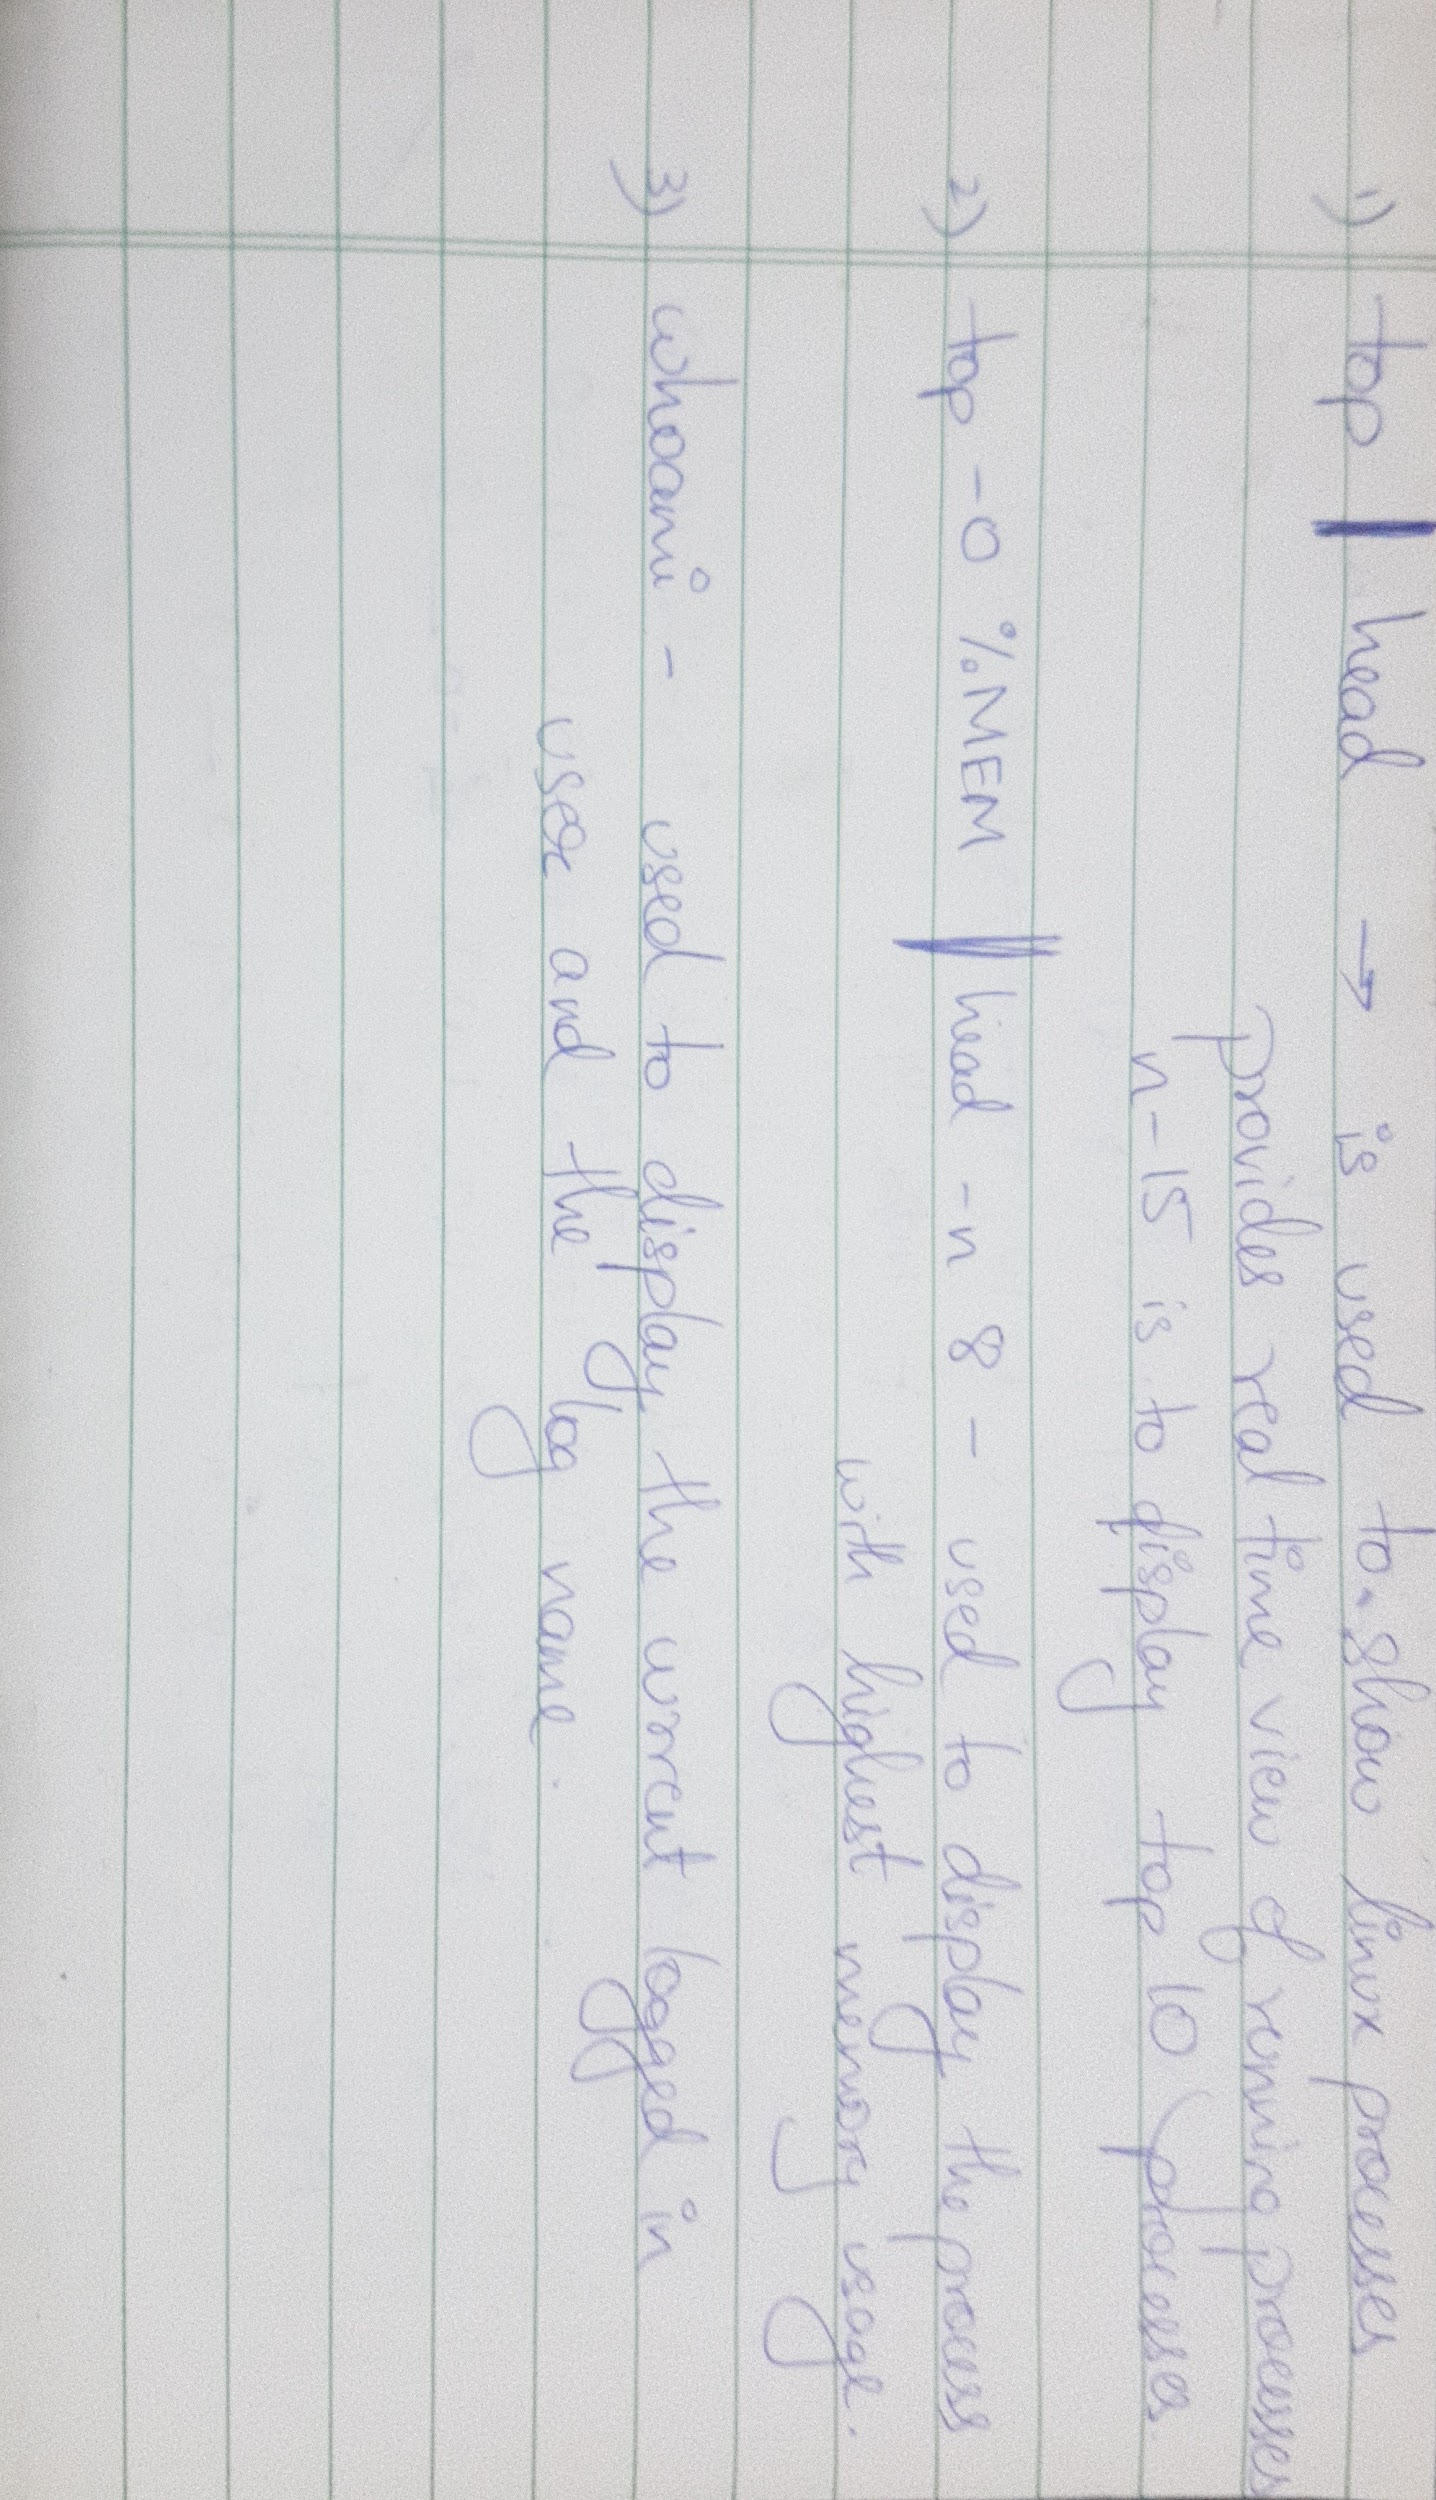 1) top | head → is used to show linux processes
provides real time view of running processes
n-15 is to display top 10 processes.
2) top -o %MEM | head -n 8 - used to display the process
with highest memory usage.
3) whoami - used to display the current logged in
user and the log name.